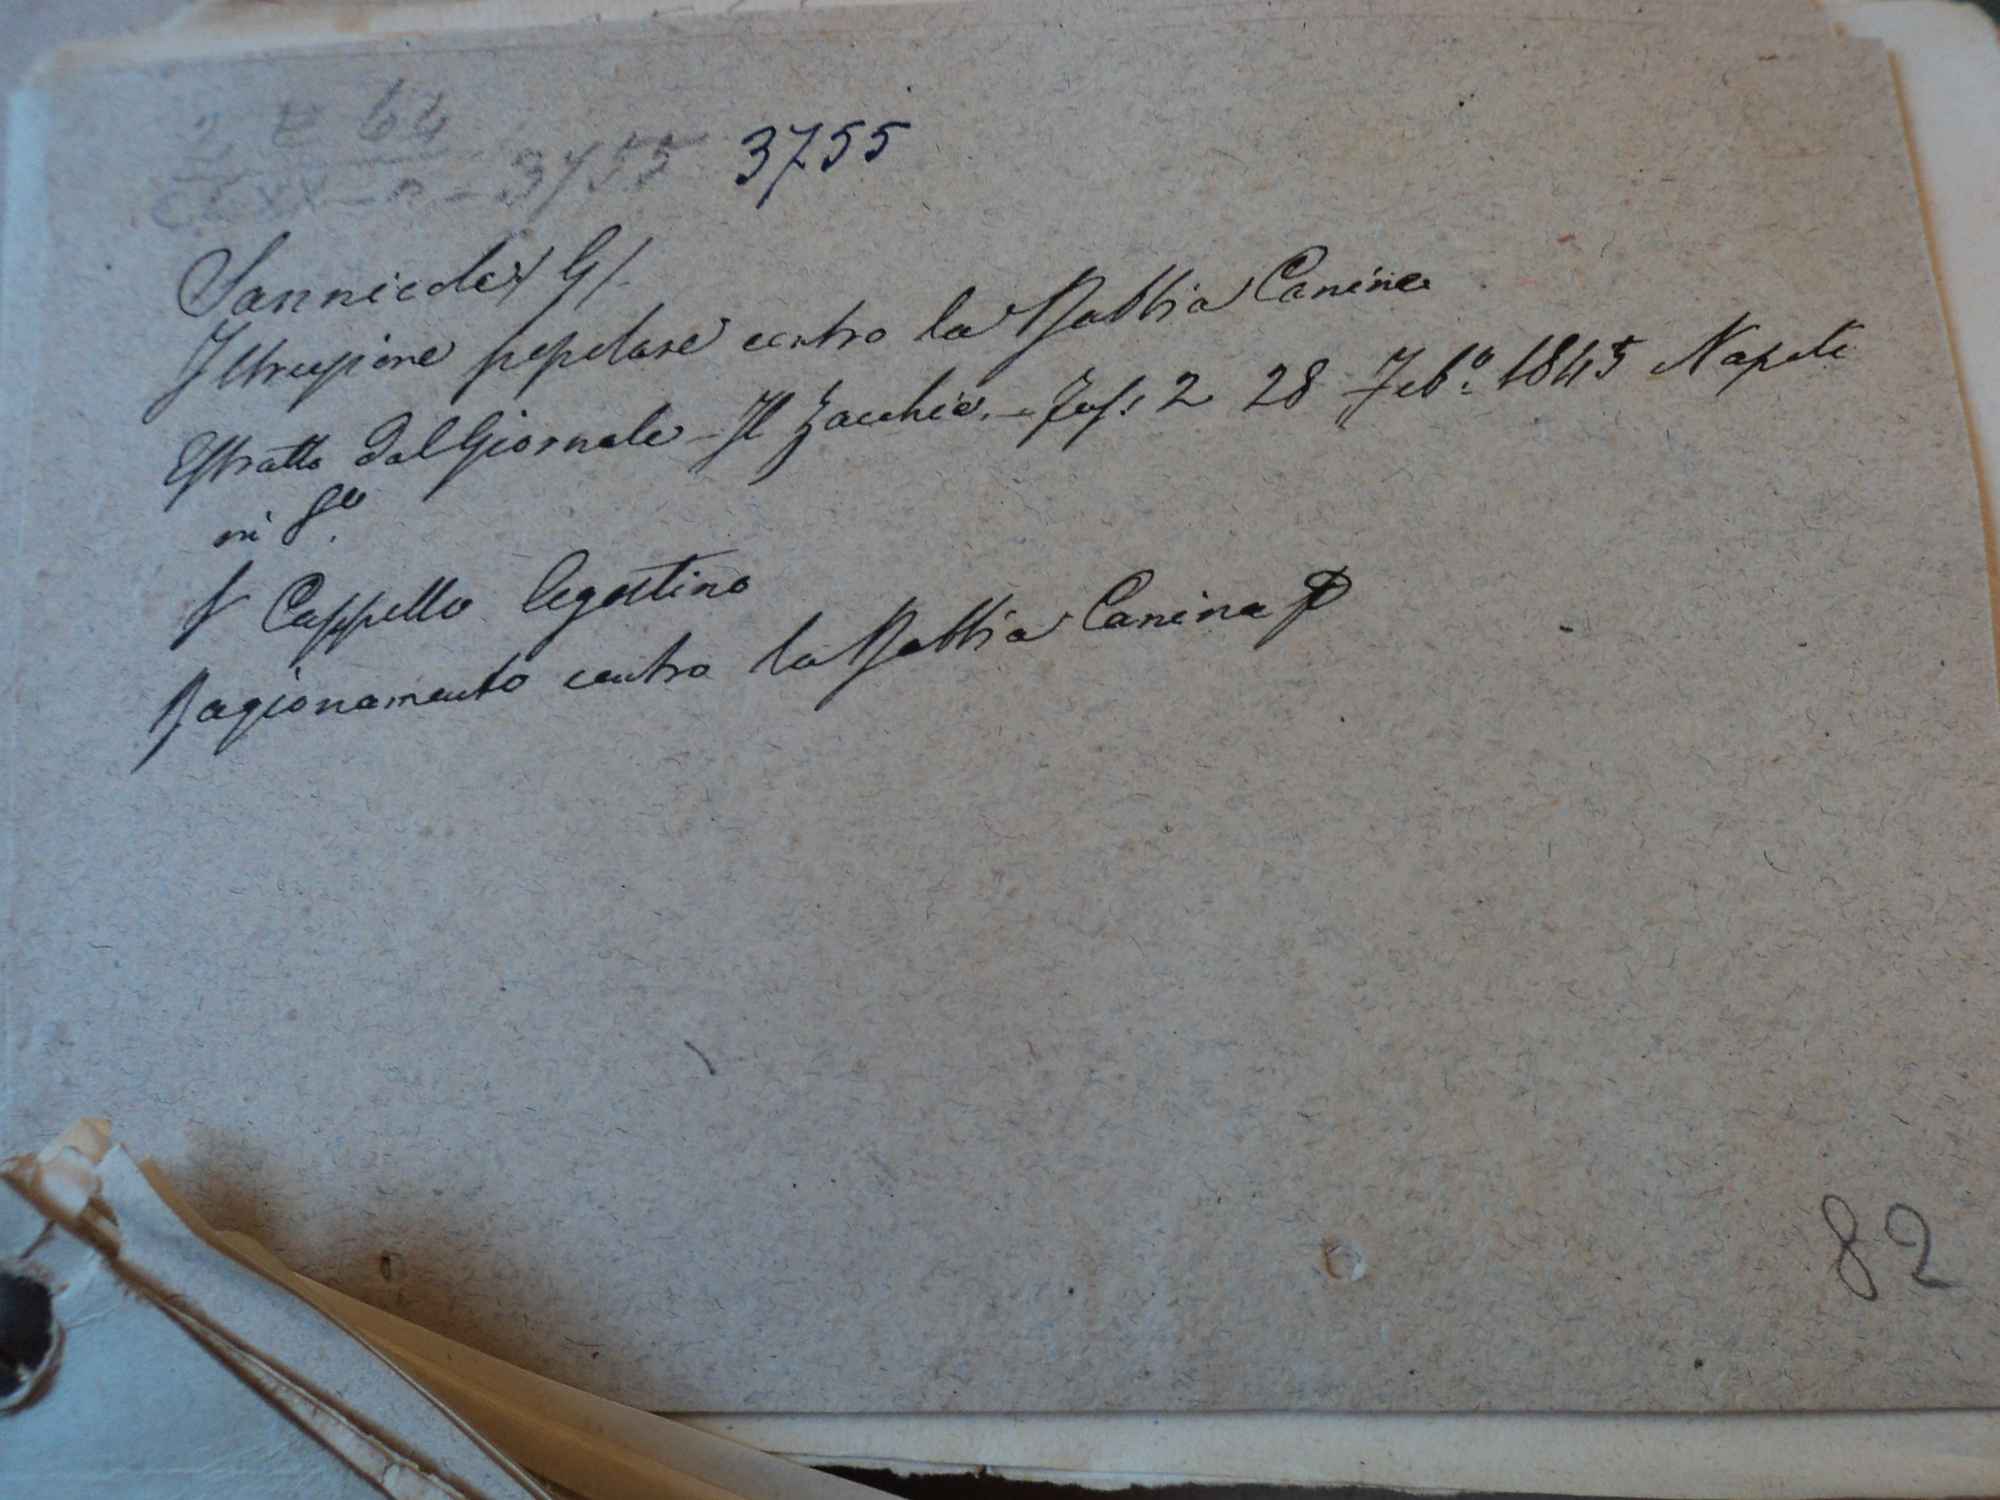 2 E 64
3755 3755
Sannicola G/.
Istruzione popolare contro la Rabbia Canina
Estratto dal Giornale – Il Zacchia. – Fas: 2 28 Febº. 1845 Napoli
in 8º.
V Cappello Agostino
Ragionamento contro la Rabbia Canina
82